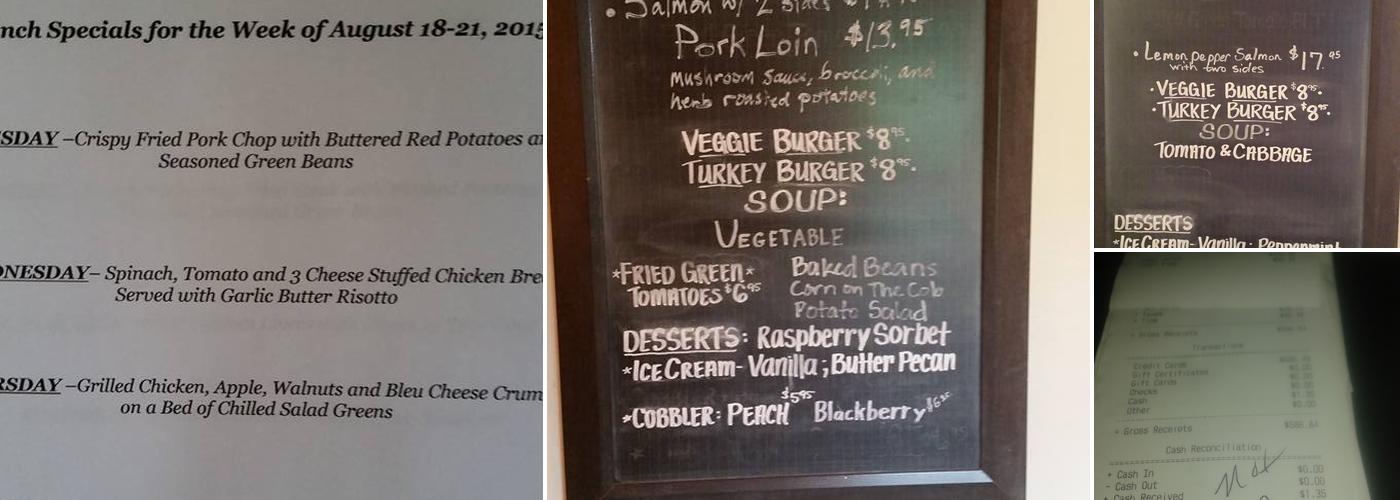 nch Specials for the Week of August 18-21, 2015
SDAY –Crispy Fried Pork Chop with Buttered Red Potatoes a
Seasoned Green Beans
NESDAY– Spinach, Tomato and 3 Cheese Stuffed Chicken Bre
Served with Garlic Butter Risotto
RSDAY –Grilled Chicken, Apple, Walnuts and Bleu Cheese Crum
on a Bed of Chilled Salad Greens
• Salmon w/ 2 sides
Pork Loin $13.95
mushroom sauce, broccoli, and
herb roasted potatoes
VEGGIE BURGER $8.95.
TURKEY BURGER $8.95.
SOUP:
VEGETABLE
*FRIED GREEN*
TOMATOES $6.95
Baked Beans
Corn on The Cob
Potato Salad
DESSERTS: Raspberry Sorbet
*ICE CREAM- Vanilla ; Butter Pecan
*COBBLER: PEACH $5.95 Blackberry
• Lemon Pepper Salmon $17.95
with two sides
·VEGGIE BURGER $8.95.
·TURKEY BURGER $8.95.
SOUP:
TOMATO & CABBAGE
DESSERTS
*ICE CREAM- Vanilla ; Peppermint
+ Gross Receipts
Transactions
Credit Cards
Gift Certificates $0.00
Gift Cards $0.00
Checks $0.00
Cash $1.35
Other $0.00
+ Gross Receipts $586.84
Cash Reconciliation
+ Cash In $0.00
- Cash Out $0.00
+ Cash Received $1.35